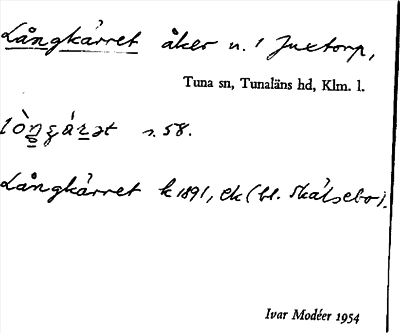 Långkärret åker n. 1 Juxtorp,
Tuna sn, Tunaläns hd, Klm. l.
s. 58.
Långkärret k 1891, Ek (bl. Skälsebo).
Ivar Modéer 1954